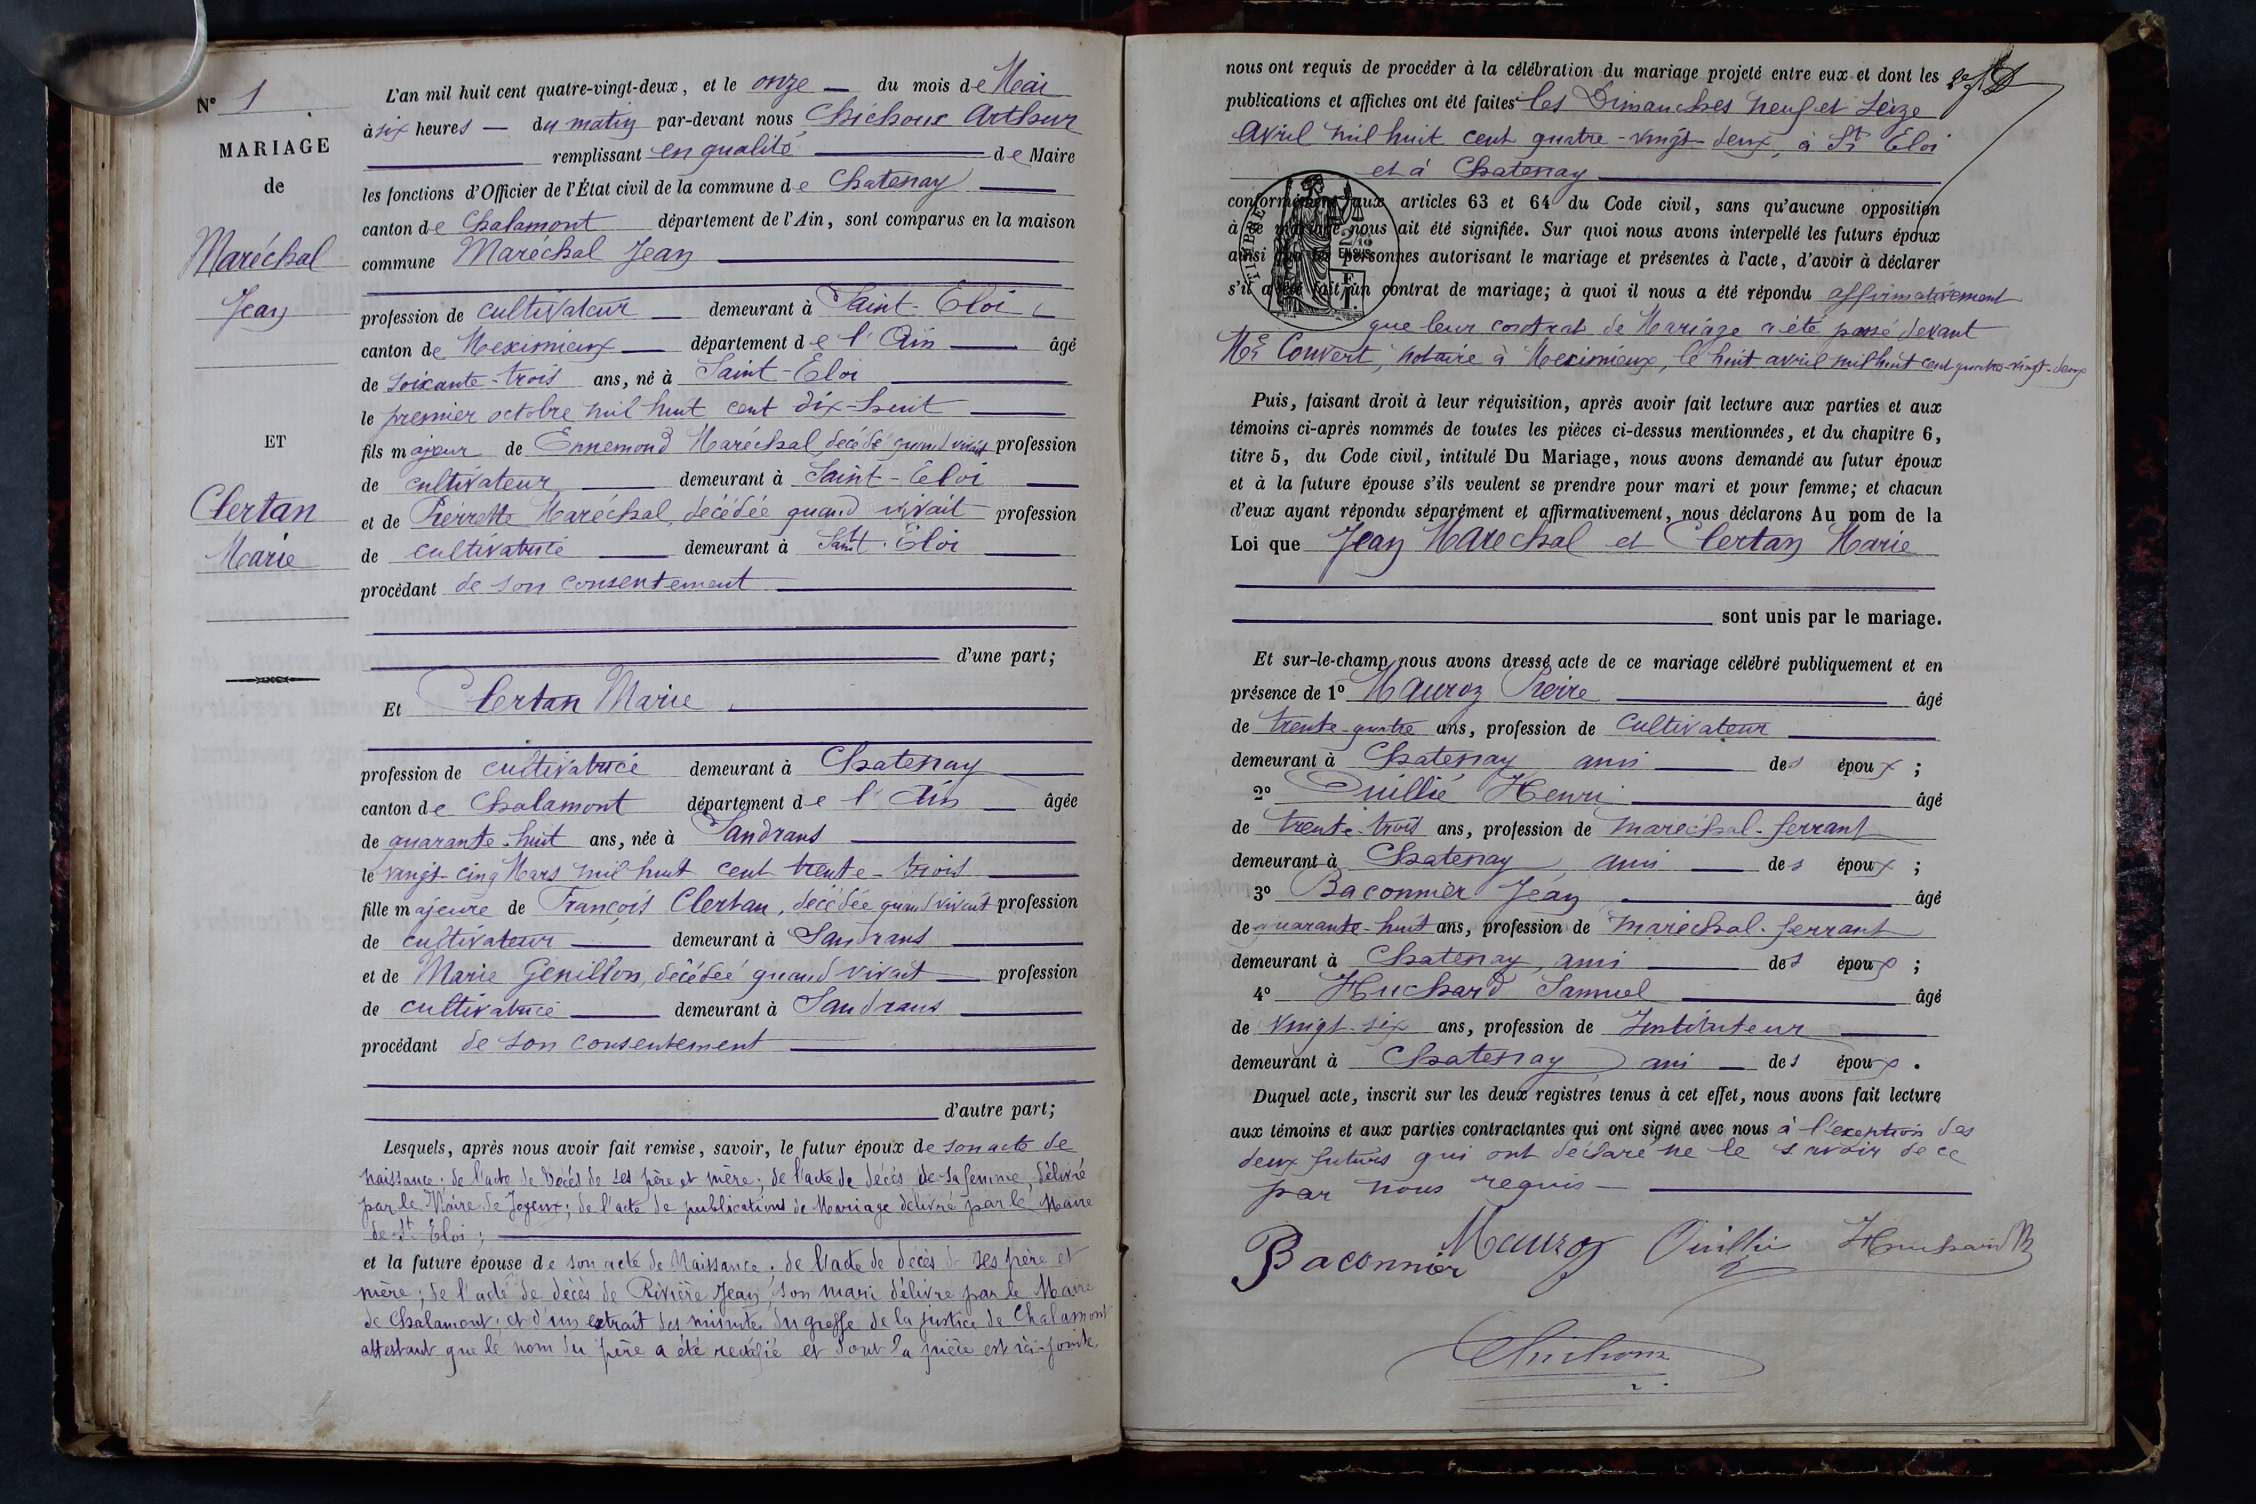 N° 1
MARIAGE
de
Maréchal
Jean
ET
Clertan
Marie
L'an mil huit cent quatre-vingt-deux, et le onze du mois de Mai
à six heures du matin par-devant nous Chichoux Arthur
remplissant en qualité de Maire
les fonctions d'Officier de l'État civil de la commune de Chatenay
canton de Chalamont département de l'Ain, sont comparus en la maison
commune Maréchal Jean
profession de cultivateur demeurant à Saint-Eloi
canton de Meximieux département de l'Ain âgé
de soixante-trois ans, né à Saint-Eloi
le premier octobre mil huit cent dix-huit
fils majeur de Ennemond Maréchal, décédé quand vivait profession
de cultivateur demeurant à Saint-Eloi
et de Pierrette Maréchal, décédée quand vivait profession
de cultivatrice demeurant à Saint-Eloi
procédant de son consentement
d'une part;
Et Clertan Marie
profession de cultivatrice demeurant à Chatenay
canton de Chalamont département de l'Ain âgée
de quarante-huit ans, née à Sandrans
le vingt-cinq Mars mil huit cent trente-trois
fille majeure de François Clertan, décédée quand vivait profession
de cultivateur demeurant à Sandrans
et de Marie Genillon, décédée quand vivait profession
de cultivatrice demeurant à Sandrans
procédant de son consentement
d'autre part;
Lesquels, après nous avoir fait remise, savoir, le futur époux de son acte de
naissance; de l'acte de décès de ses père et mère; de l'acte de décès de sa femme, délivré
par le Maire de Joyeux; de l'acte de publications de Mariage délivré par le Maire
de St Eloi;
et la future épouse de son acte de Naissance; de l'acte de décès de ses père et
mère; de l'acte de décès de Rivière Jean, son mari délivré par le Maire
de Chalamont; et d'un extrait des minutes du greffe de la justice de Chalamont
attestant que le nom du père a été rectifié et dont la pièce est ci-jointe.
nous ont requis de procéder à la célébration du mariage projeté entre eux et dont les
publications et affiches ont été faites les Dimanches neuf et seize
Avril mil huit cent quatre-vingt-deux, à St Eloi
et à Chatenay
conformément aux articles 63 et 64 du Code civil, sans qu'aucune opposition
à ce mariage nous ait été signifiée. Sur quoi nous avons interpellé les futurs époux
ainsi que les personnes autorisant le mariage et présentes à l'acte, d'avoir à déclarer
s'il a été fait un contrat de mariage; à quoi il nous a été répondu affirmativement
que leur contrat de Mariage a été passé devant
Me Convert, notaire à Meximieux, le huit avril mil huit cent quatre-vingt-deux
TIMBRE
2/10
EN SUS
F
1.
Puis, faisant droit à leur réquisition, après avoir fait lecture aux parties et aux
témoins ci-après nommés de toutes les pièces ci-dessus mentionnées, et du chapitre 6,
titre 5, du Code civil, intitulé Du Mariage, nous avons demandé au futur époux
et à la future épouse s'ils veulent se prendre pour mari et pour femme; et chacun
d'eux ayant répondu séparément et affirmativement, nous déclarons Au nom de la
Loi que Jean Maréchal et Clertan Marie
sont unis par le mariage.
Et sur-le-champ nous avons dressé acte de ce mariage célébré publiquement et en
présence de 1° Mauroz Pierre âgé
de trente-quatre ans, profession de cultivateur
demeurant à Chatenay ami des époux;
2° Quillié Henri âgé
de trente-trois ans, profession de maréchal-ferrant
demeurant à Chatenay, ami des époux;
3° Baconnier Jean âgé
de quarante-huit ans, profession de maréchal-ferrant
demeurant à Chatenay, ami des époux;
4° Huchard Samuel âgé
de vingt-six ans, profession de Instituteur
demeurant à Chatenay ami des époux.
Duquel acte, inscrit sur les deux registres tenus à cet effet, nous avons fait lecture
aux témoins et aux parties contractantes qui ont signé avec nous à l'exeption des
deux futurs qui ont déclaré ne le savoir de ce
par nous requis
Baconnier Mauroz Quillié Huchard
Chichoux